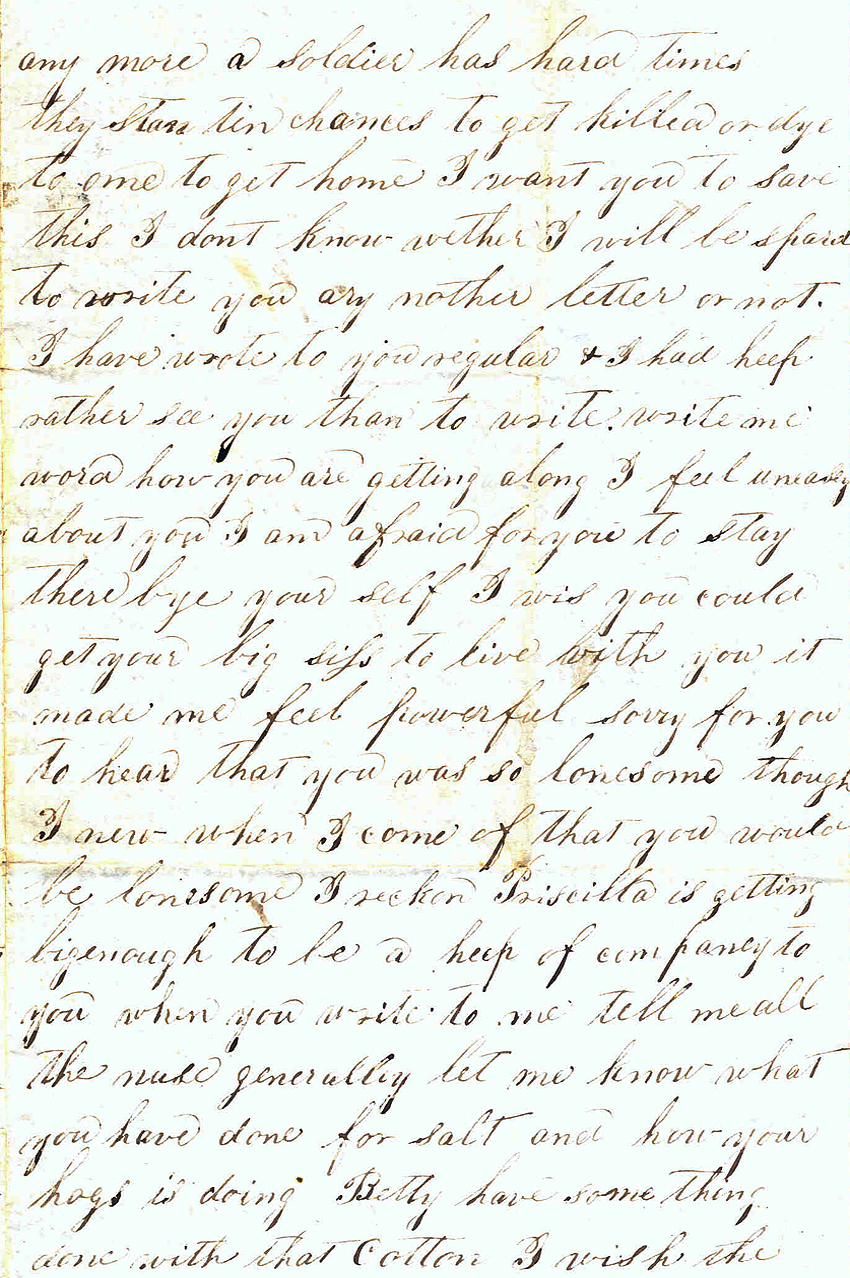 any more a soldier has hard times
they stan tin chances to get killed or dye
to ome to get home I want you to save
this I dont know wether I will be spard
to write you ary nother letter or not.
I have wrote to you regular & I had heep
rather see you than to write. write me
word how you are getting along I feel uneasy
about you I am afraid for you to stay
there bye your self I wis you could
get your big siss to live with you it
made me feel powerful sorry for you
to hear that you was so lonesome though
I new when I come of that you would
be lonesome I reckon Priscilla is getting
bigenough to be a heep of companey to
you when you write to me tell me all
the nuse generalley let me know what
you have done for salt and how your
hogs is doing Betty have some thing
done with that Cotton I wish the